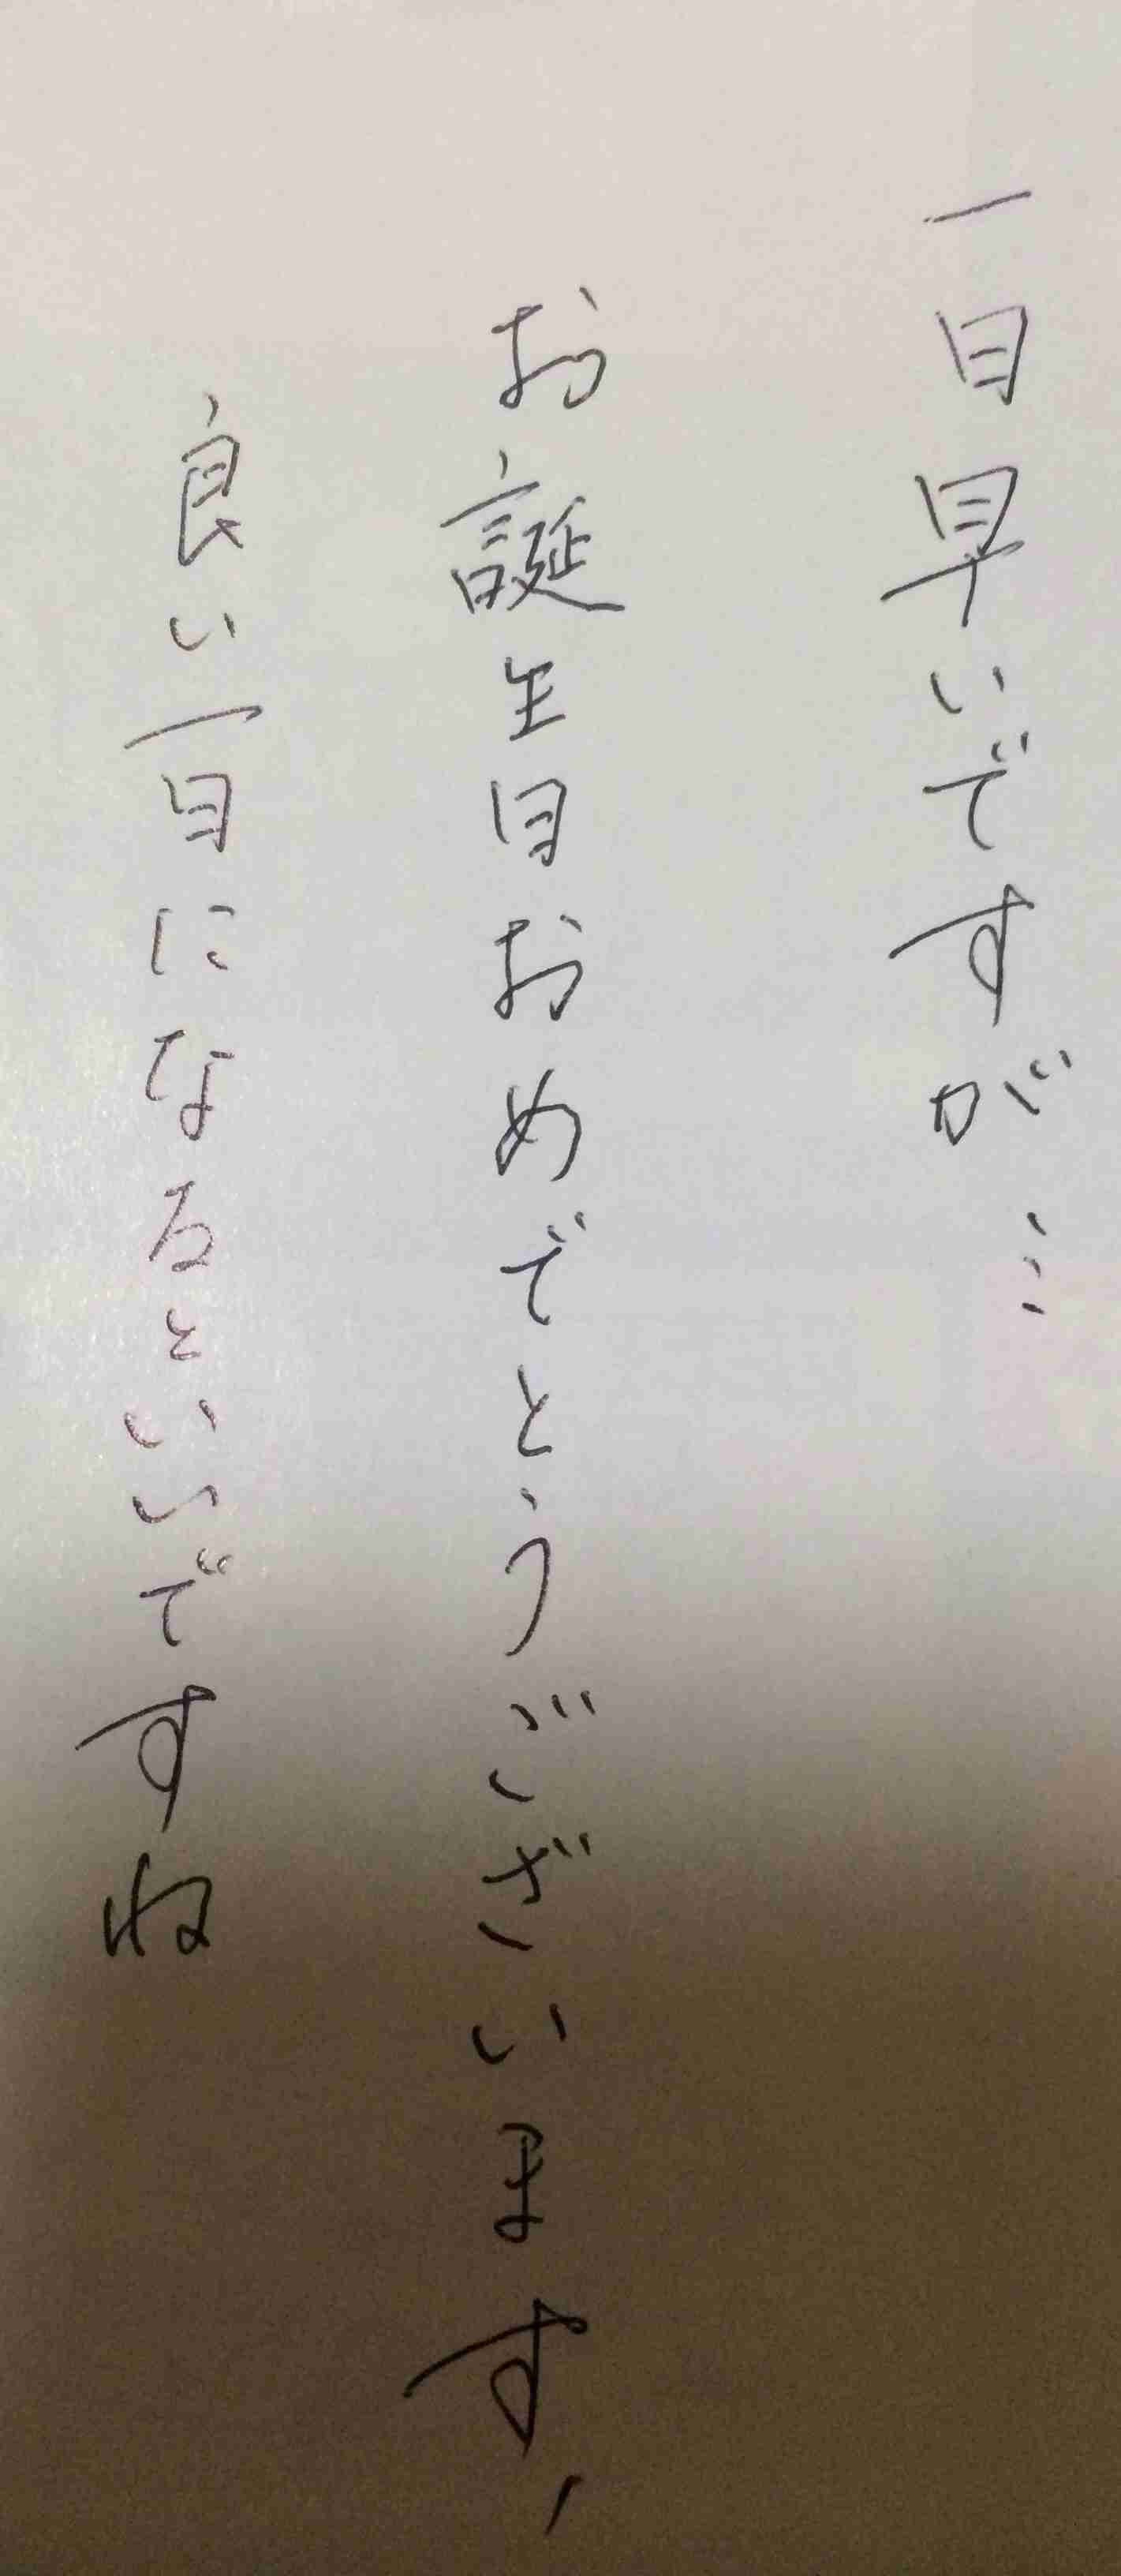 一日早いですが…
お誕生日おめでとうございます、
良い一日になるといいですね